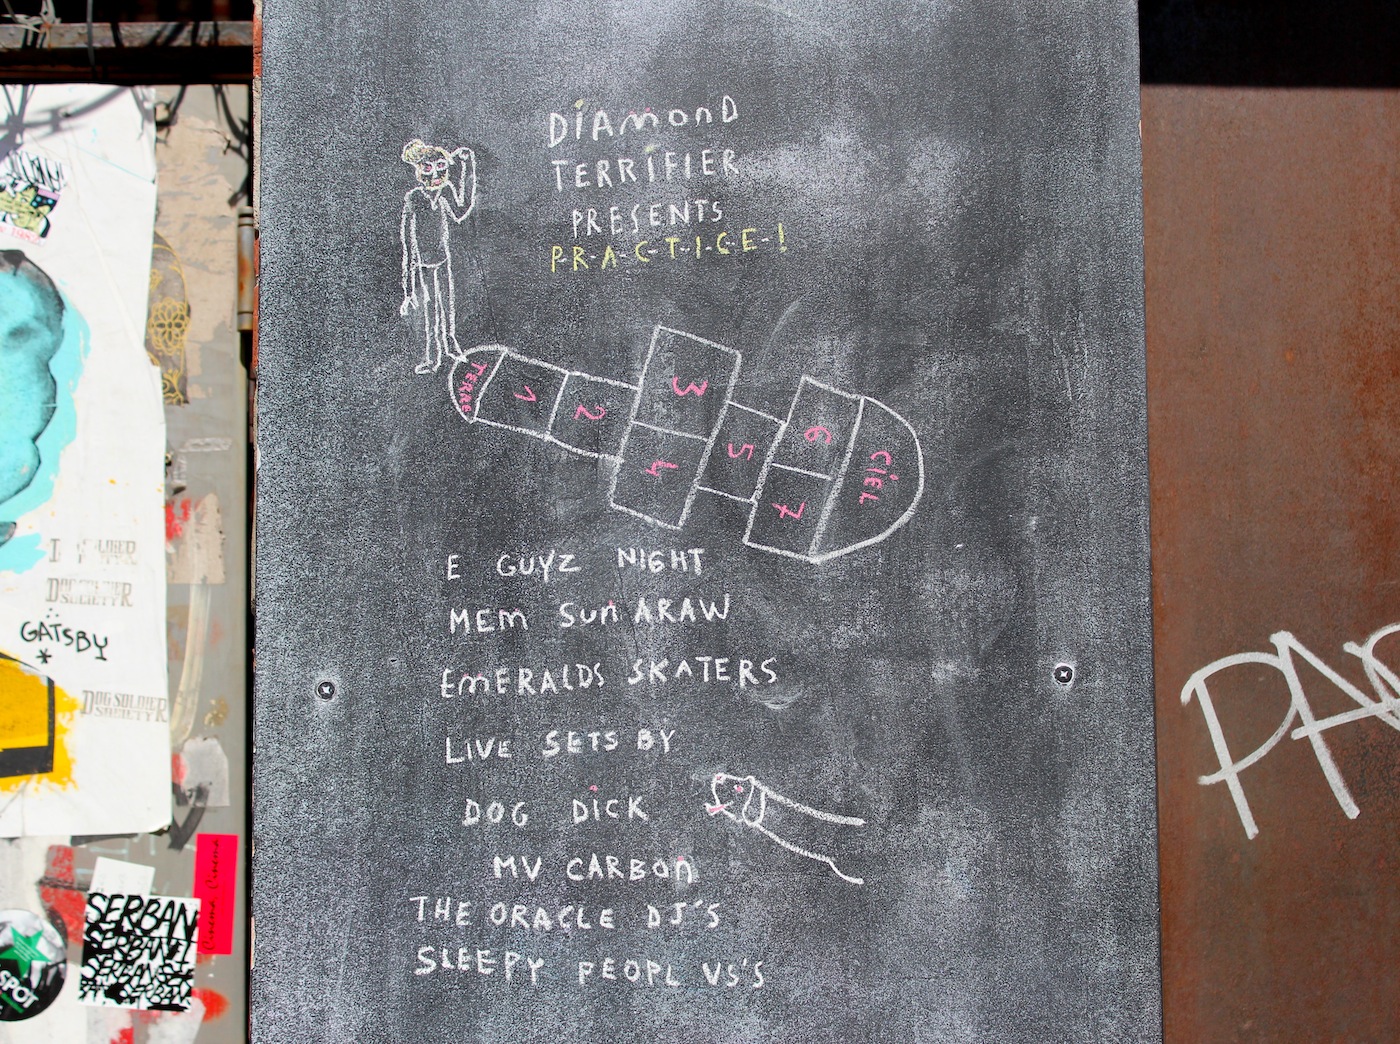 DIAMOND
TERRIFIER
PRESENTS
P-R-A-C-T-I-C-E-!
TERRE
1
2
3
4
5
6
7
CIEL
E GUYZ NIGHT
MEM SUN ARAW
EMERALDS SKATERS
LIVE SETS BY
DOG DICK
MV CARBON
THE ORACLE DJ'S
SLEEPY PEOPL VS'S
DOG SOLDIER
SOCIETY
GATSBY
*
DOG SOLDIER
SOCIETY
Cinema Cinema
SERBAN
SPOT